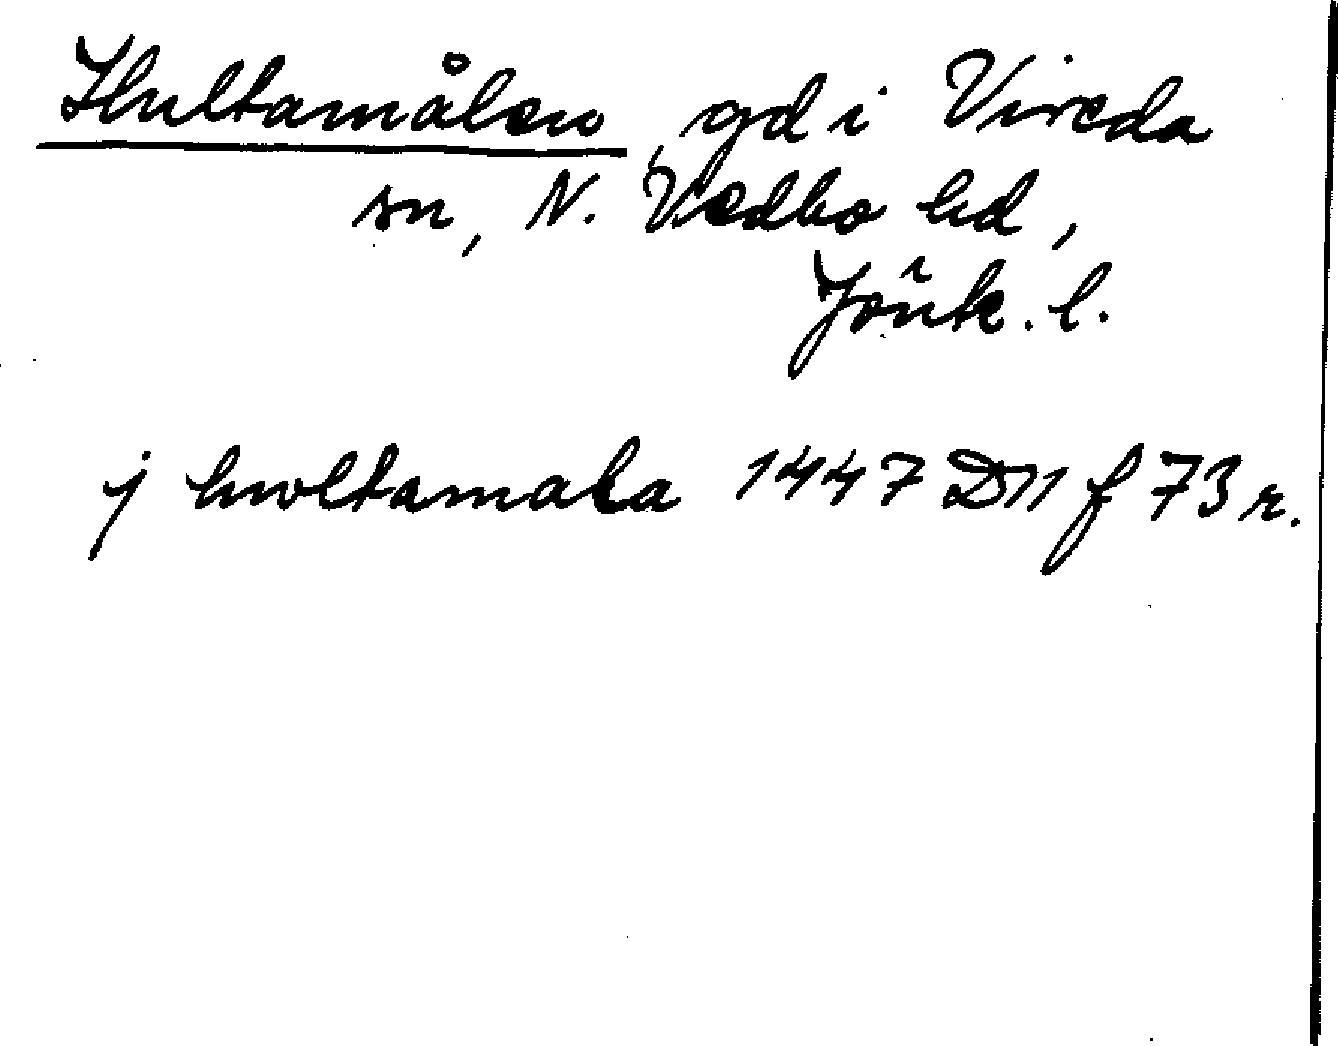 Hultamålen, gd i Vireda
sn, N. Vedbo hd,
Jönk. l.
j hwltamala 1447 D11 f 73 r.